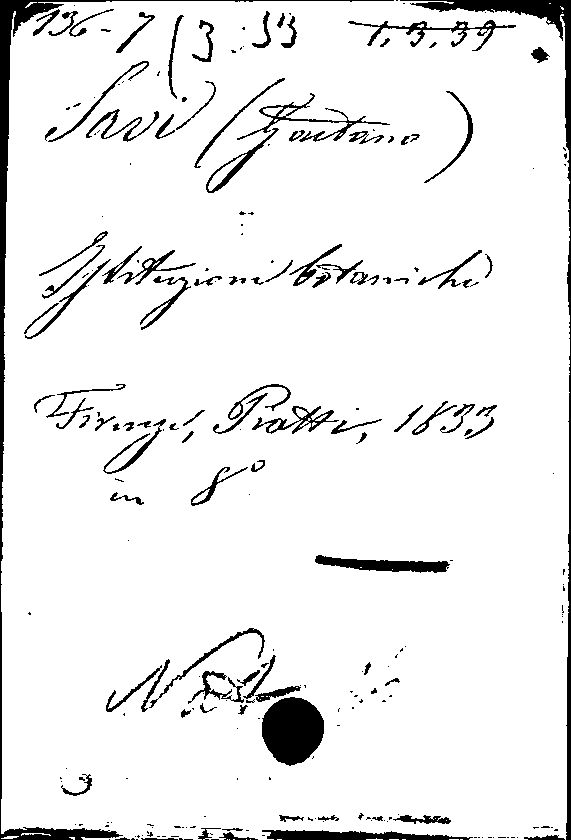 136-7 (3.33 1.3.39
Savi (Gaetano)
Istituzioni botaniche
Firenze, Piatti, 1833
in 8°